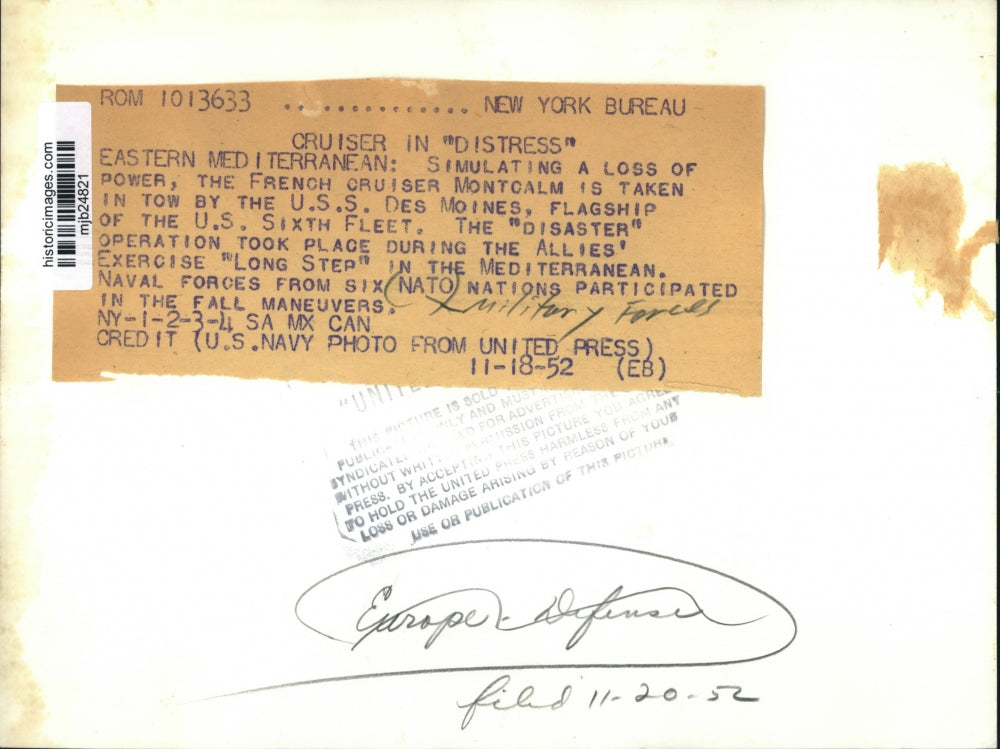 ROM 1013633 .............. NEW YORK BUREAU
CRUISER IN "DISTRESS"
EASTERN MEDITERRANEAN: SIMULATING A LOSS OF
POWER, THE FRENCH CRUISER MONTCALM IS TAKEN
IN TOW BY THE U.S.S. DES MOINES, FLAGSHIP
OF THE U.S. SIXTH FLEET. THE "DISASTER"
OPERATION TOOK PLACE DURING THE ALLIES'
EXERCISE "LONG STEP" IN THE MEDITERRANEAN.
NAVAL FORCES FROM SIX (NATO) NATIONS PARTICIPATED
IN THE FALL MANEUVERS. X Military Forces
NY-1-2-3-4 SA MX CAN
CREDIT (U.S.NAVY PHOTO FROM UNITED PRESS)
11-18-52 (EB)
historicimages.com
mjb24821
"UNITE
THIS PICTURE IS SOLD
ONLY AND MUST
SYNDICATE FOR ADVERTI
WITHOUT WRIT PERMISSION FROM THE
PRESS. BY ACCEPTIN THIS PICTURE YOU AGREE
TO HOLD THE UNITED PRESS HARMLESS FROM ANY
LOSS OR DAMAGE ARISING BY REASON OF YOUR
USE OR PUBLICATION OF THIS PICTURE
Europe - Defense
filed 11-20-52